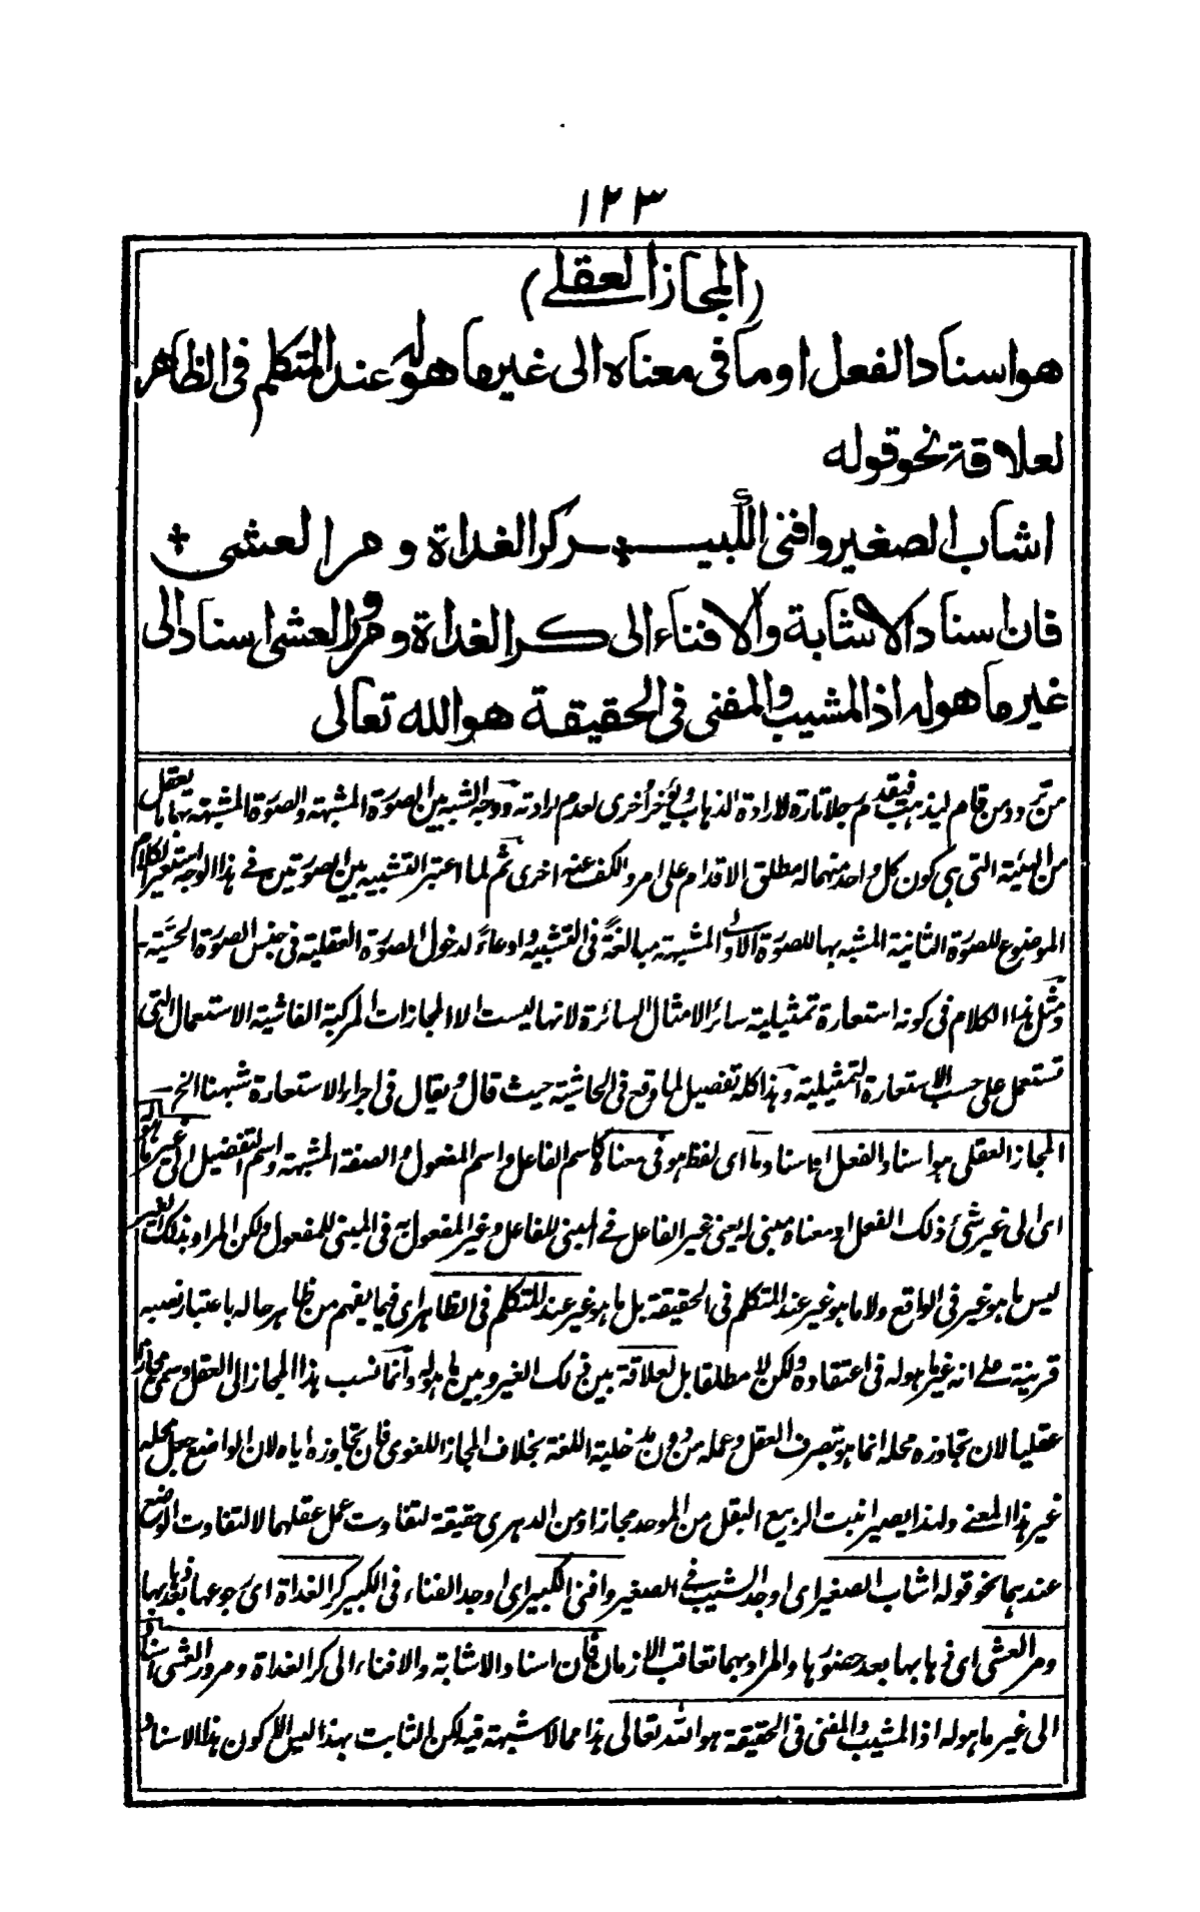 ١٢٣
(المجاز العقلي)
هو اسناد الفعل او ما فى معناه الى غير ما هو له عند المتكلم فى الظاهر
لعلاقة نحو قوله
اشاب الصغير وافنى الكبيـــر كر الغداة ومر العشى
فان اسناد الاشابة والافناء الى كر الغداة ومرور العشى اسناد الى
غير ما هو له اذ المشيب والمفنى فى الحقيقة هو الله تعالى
من تردد من قام ليذهب فيقدم رجلا تارة لارادة الذهاب ويؤخر اخرى لعدم ارادته ووجه الشبه بين الصورة المشبهة والصورة المشبهة بها ما يعقل
من الهيئة التى هى كون كل واحد منهما له مطلق الاقدام على امر والكف عنه اخرى ثم لما اعتبر التشبيه بين الصورتين فى هذا الوجه استعير الكلام
الموضوع للصورة الثانية المشبه بها للصورة الاولى المشبهة مبالغةً فى التشبيه وادعاءً لدخول الصورة العقلية فى جنس الصورة الحسّية
ومثل هذا الكلام فى كونه استعارة تمثيلية سائر الامثال السائرة لانها ليست الا المجازات المركبة الفاشية الاستعمال التى
تستعمل على حسب الاستعارة التمثيلية وهذا كله تفصيل لما وقع فى الحاشية حيث قال ويقال فى اجراء الاستعارة شبهنا الخ
المجاز العقلى هو اسناد الفعل او اسناد ما اى لفظ هو فى معناه كاسم الفاعل واسم المفعول والصفة المشبهة واسم التفضيل الى غير ما هو له
اى الى غير شئ ذلك الفعل او معناه مبنى له يعنى غير الفاعل فى المبنى للفاعل وغير المفعول به فى المبنى للمفعول ولكن المراد بذلك الغير
ليس ما هو غير فى الواقع ولا ما هو غير عند المتكلم فى الحقيقة بل ما هو غير عند المتكلم فى الظاهر اى فيما يفهم من ظاهر حاله باعتبار نصبه
قرينة على انه غير ما هو له فى اعتقاده ولكن لا مطلقا بل لعلاقة بين ذلك الغير وبين ما هو له وانما نسب هذا المجاز الى العقل وسمى مجازا
عقليا لان تجاوزه محله انما هو تبصرف العقل وعمله من دون مدخلية اللغة بخلاف المجاز اللغوى فان تجاوزه اياه لان الواضع جعل محله
غير هذا المعنى ولهذا يصير انبت الربيع البقل من الموحد مجازا ومن الدهرى حقيقة لتفاوت عمل عقلهما لا لتفاوت الوضع
عندهما نحو قوله اشاب الصغير اى اوجد الشيب فى الصغير وافنى الكبير اى اوجد الفناء فى الكبير كر الغداة اى رجوعها بعد ذهابها
ومر العشى اى ذهابها بعد حضورها والمراد بهما تعاقب الازمان فان اسناد الاشابة والافناء الى كر الغداة ومرور العشى اسناد
الى غير ما هو له اذ المشيب والمفنى فى الحقيقة هو الله تعالى هذا مما لا شبهة فيه لكن الثابت بهذا الدليل كون هذا الاسناد